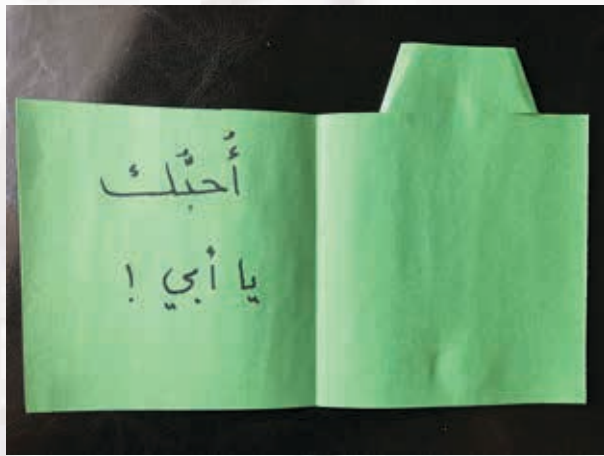 أُحبُّك
يا أبي !